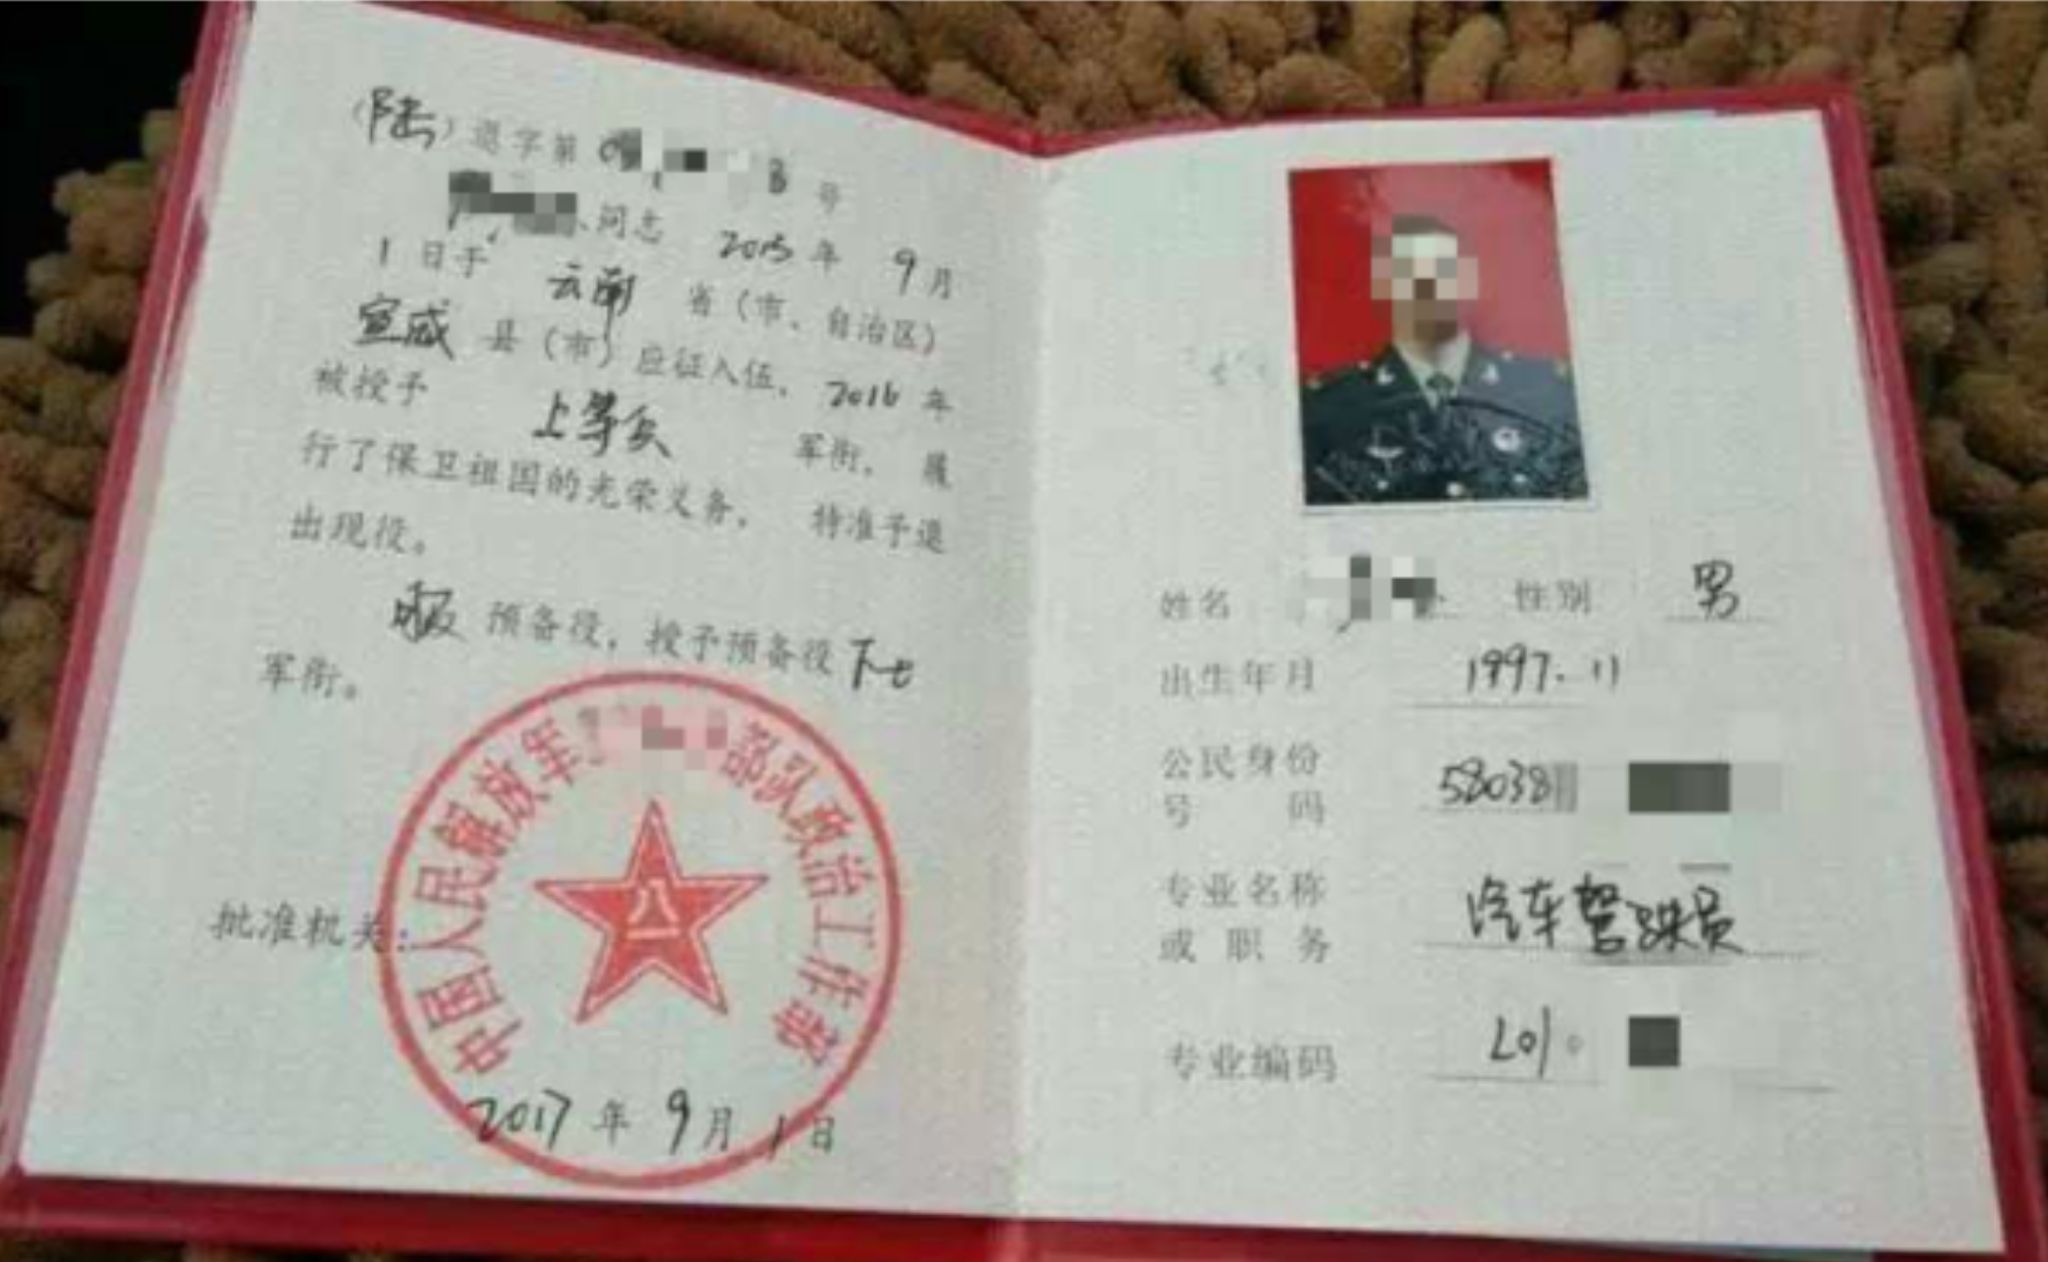 （陆）退字第 号
同志 2015 年 9 月
1 日于 云南 省（市、自治区）
宣威 县（市）应征入伍，2016 年
被授予 上等兵 军衔，履
行了保卫祖国的光荣义务，特准予退
出现役。
服 预备役，授予预备役 下士
军衔。
中国人民解放军 部队政治工作部
八一
批准机关：
2017 年 9 月 1 日
姓名 性别 男
出生年月 1997.11
公民身份 58038
号 码
专业名称 汽车驾驶员
或 职 务
专业编码